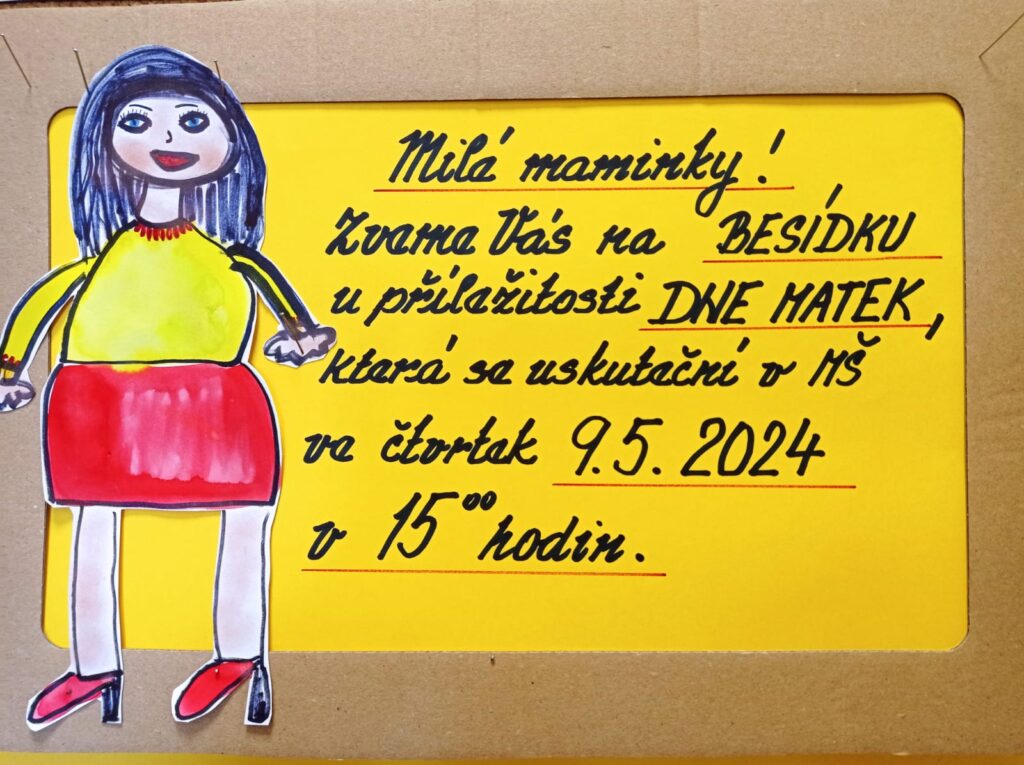 Milé maminky!
Zveme Vás na BESÍDKU
u příležitosti DNE MATEK,
která se uskuteční v MŠ
ve čtvrtek 9.5. 2024
v 15⁰⁰ hodin.